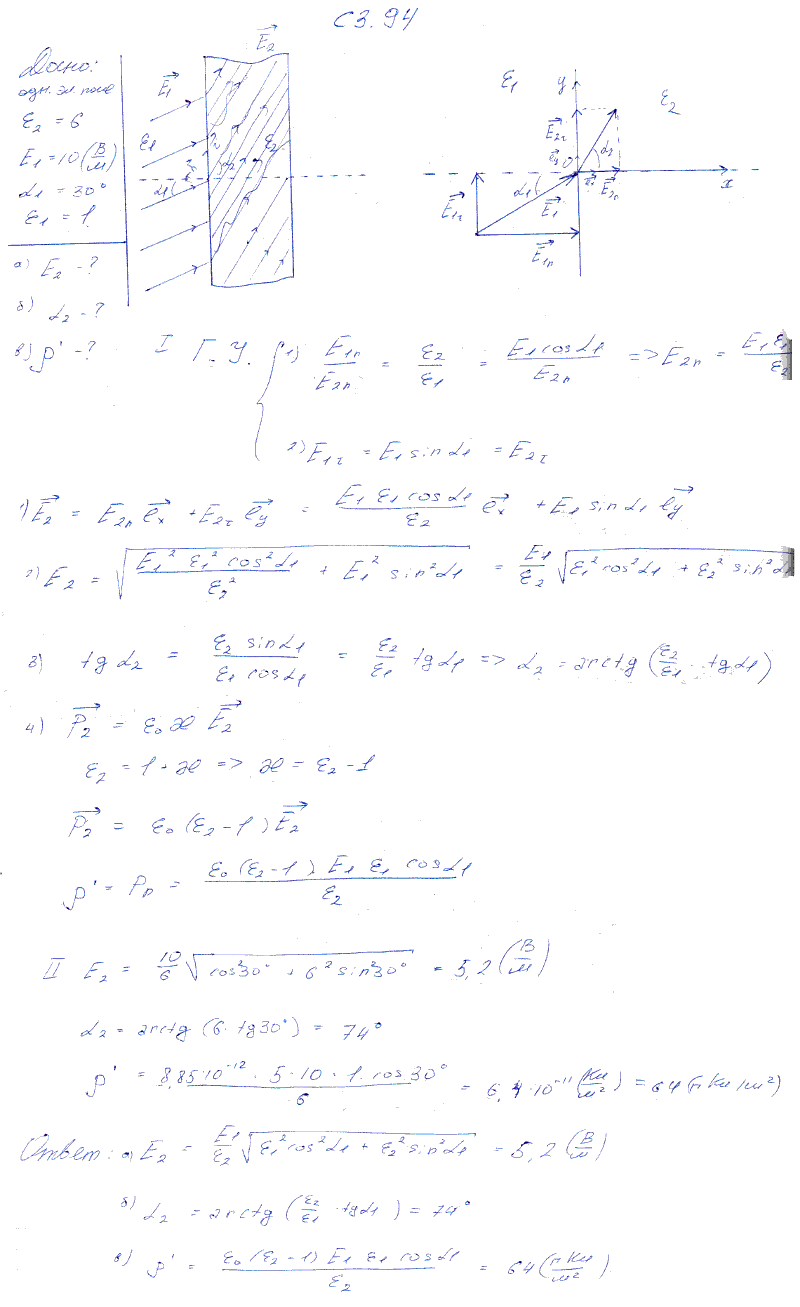 С3.94
Дано:
одн. эл. поле
ε₂ = 6
E₁ = 10 (В/м)
α₁ = 30°
ε₁ = 1
а) E₂ - ?
б) α₂ - ?
в) ρ' - ?
E₁⃗ E₂⃗ ε₁ ε₂ α₁ α₂
ε₁ y ε₂
E₂τ⃗ α₂
O x
α₁ E₂n⃗
E₁τ⃗ E₁⃗
E₁n⃗
I Г.У. 1) E₁n/E₂n = ε₂/ε₁ = E₁cosα₁/E₂n => E₂n = E₁ ε₁/ε₂
2) E₁τ = E₁ sinα₁ = E₂τ
1) E₂⃗ = E₂n eₓ⃗ + E₂τ e_y⃗ = (E₁ ε₁ cosα₁)/ε₂ eₓ⃗ + E₁ sinα₁ e_y⃗
2) E₂ = √(E₁² ε₁² cos²α₁/ε₂² + E₁² sin²α₁) = E₁/ε₂ √(ε₁² cos²α₁ + ε₂² sin²α₁
3) tgα₂ = (ε₂ sinα₁)/(ε₁ cosα₁) = ε₂/ε₁ tgα₁ => α₂ = arctg(ε₂/ε₁ · tgα₁)
4) P₂⃗ = ε₀ æ E₂⃗
ε₂ = 1 + æ => æ = ε₂ - 1
P₂⃗ = ε₀ (ε₂ - 1) E₂⃗
ρ' = Pn = (ε₀ (ε₂ - 1) E₁ ε₁ cosα₁)/ε₂
II E₂ = 10/6 √(cos²30° + 6² sin²30°) = 5,2 (В/м)
α₂ = arctg (6 · tg30°) = 74°
ρ' = (8,85·10⁻¹² · 5 · 10 · 1 · cos30°)/6 = 6,4·10⁻¹¹ (Кл/м²) = 64 (пКл/м²)
Ответ: а) E₂ = E₁/ε₂ √(ε₁² cos²α₁ + ε₂² sin²α₁) = 5,2 (В/м)
б) α₂ = arctg (ε₂/ε₁ · tgα₁) = 74°
в) ρ' = (ε₀ (ε₂ - 1) E₁ ε₁ cosα₁)/ε₂ = 64 (пКл/м²)